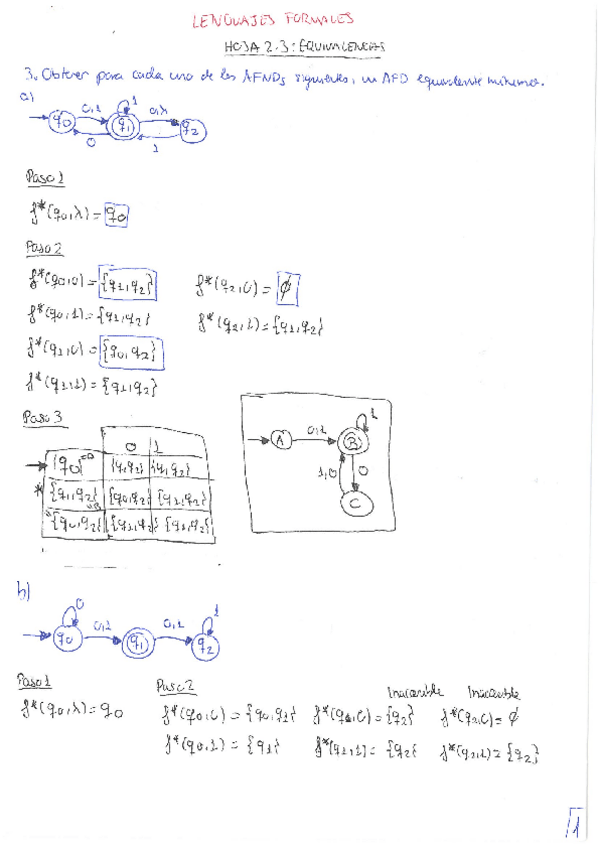 LENGUAJES FORMALES
HOJA 2.3: EQUIVALENCIAS
3. Obtener para cada uno de los AFNDs siguientes, un AFD equivalente mínimo.
a)
q0 0,1 q1 1 0,λ q2
0 1
Paso 1
f*(q0,λ) = q0
Paso 2
f*(q0,0) = {q1,q2} f*(q2,0) = ∅
f*(q0,1) = {q1,q2} f*(q2,1) = {q1,q2}
f*(q1,0) = {q0,q2}
f*(q1,1) = {q1,q2}
Paso 3
0 1
{q0} {q1,q2} {q1,q2}
* {q1,q2} {q0,q2} {q1,q2}
{q0,q2} {q1,q2} {q1,q2}
A 0,1 B 1
1,0 0
C
b)
0 1
q0 0,1 q1 0,1 q2
Paso 1 Paso 2 Inaccesible Inaccesible
f*(q0,λ) = q0 f*(q0,0) = {q0,q1} f*(q1,0) = {q2} f*(q2,0) = ∅
f*(q0,1) = {q1} f*(q1,1) = {q2} f*(q2,1) = {q2}
1